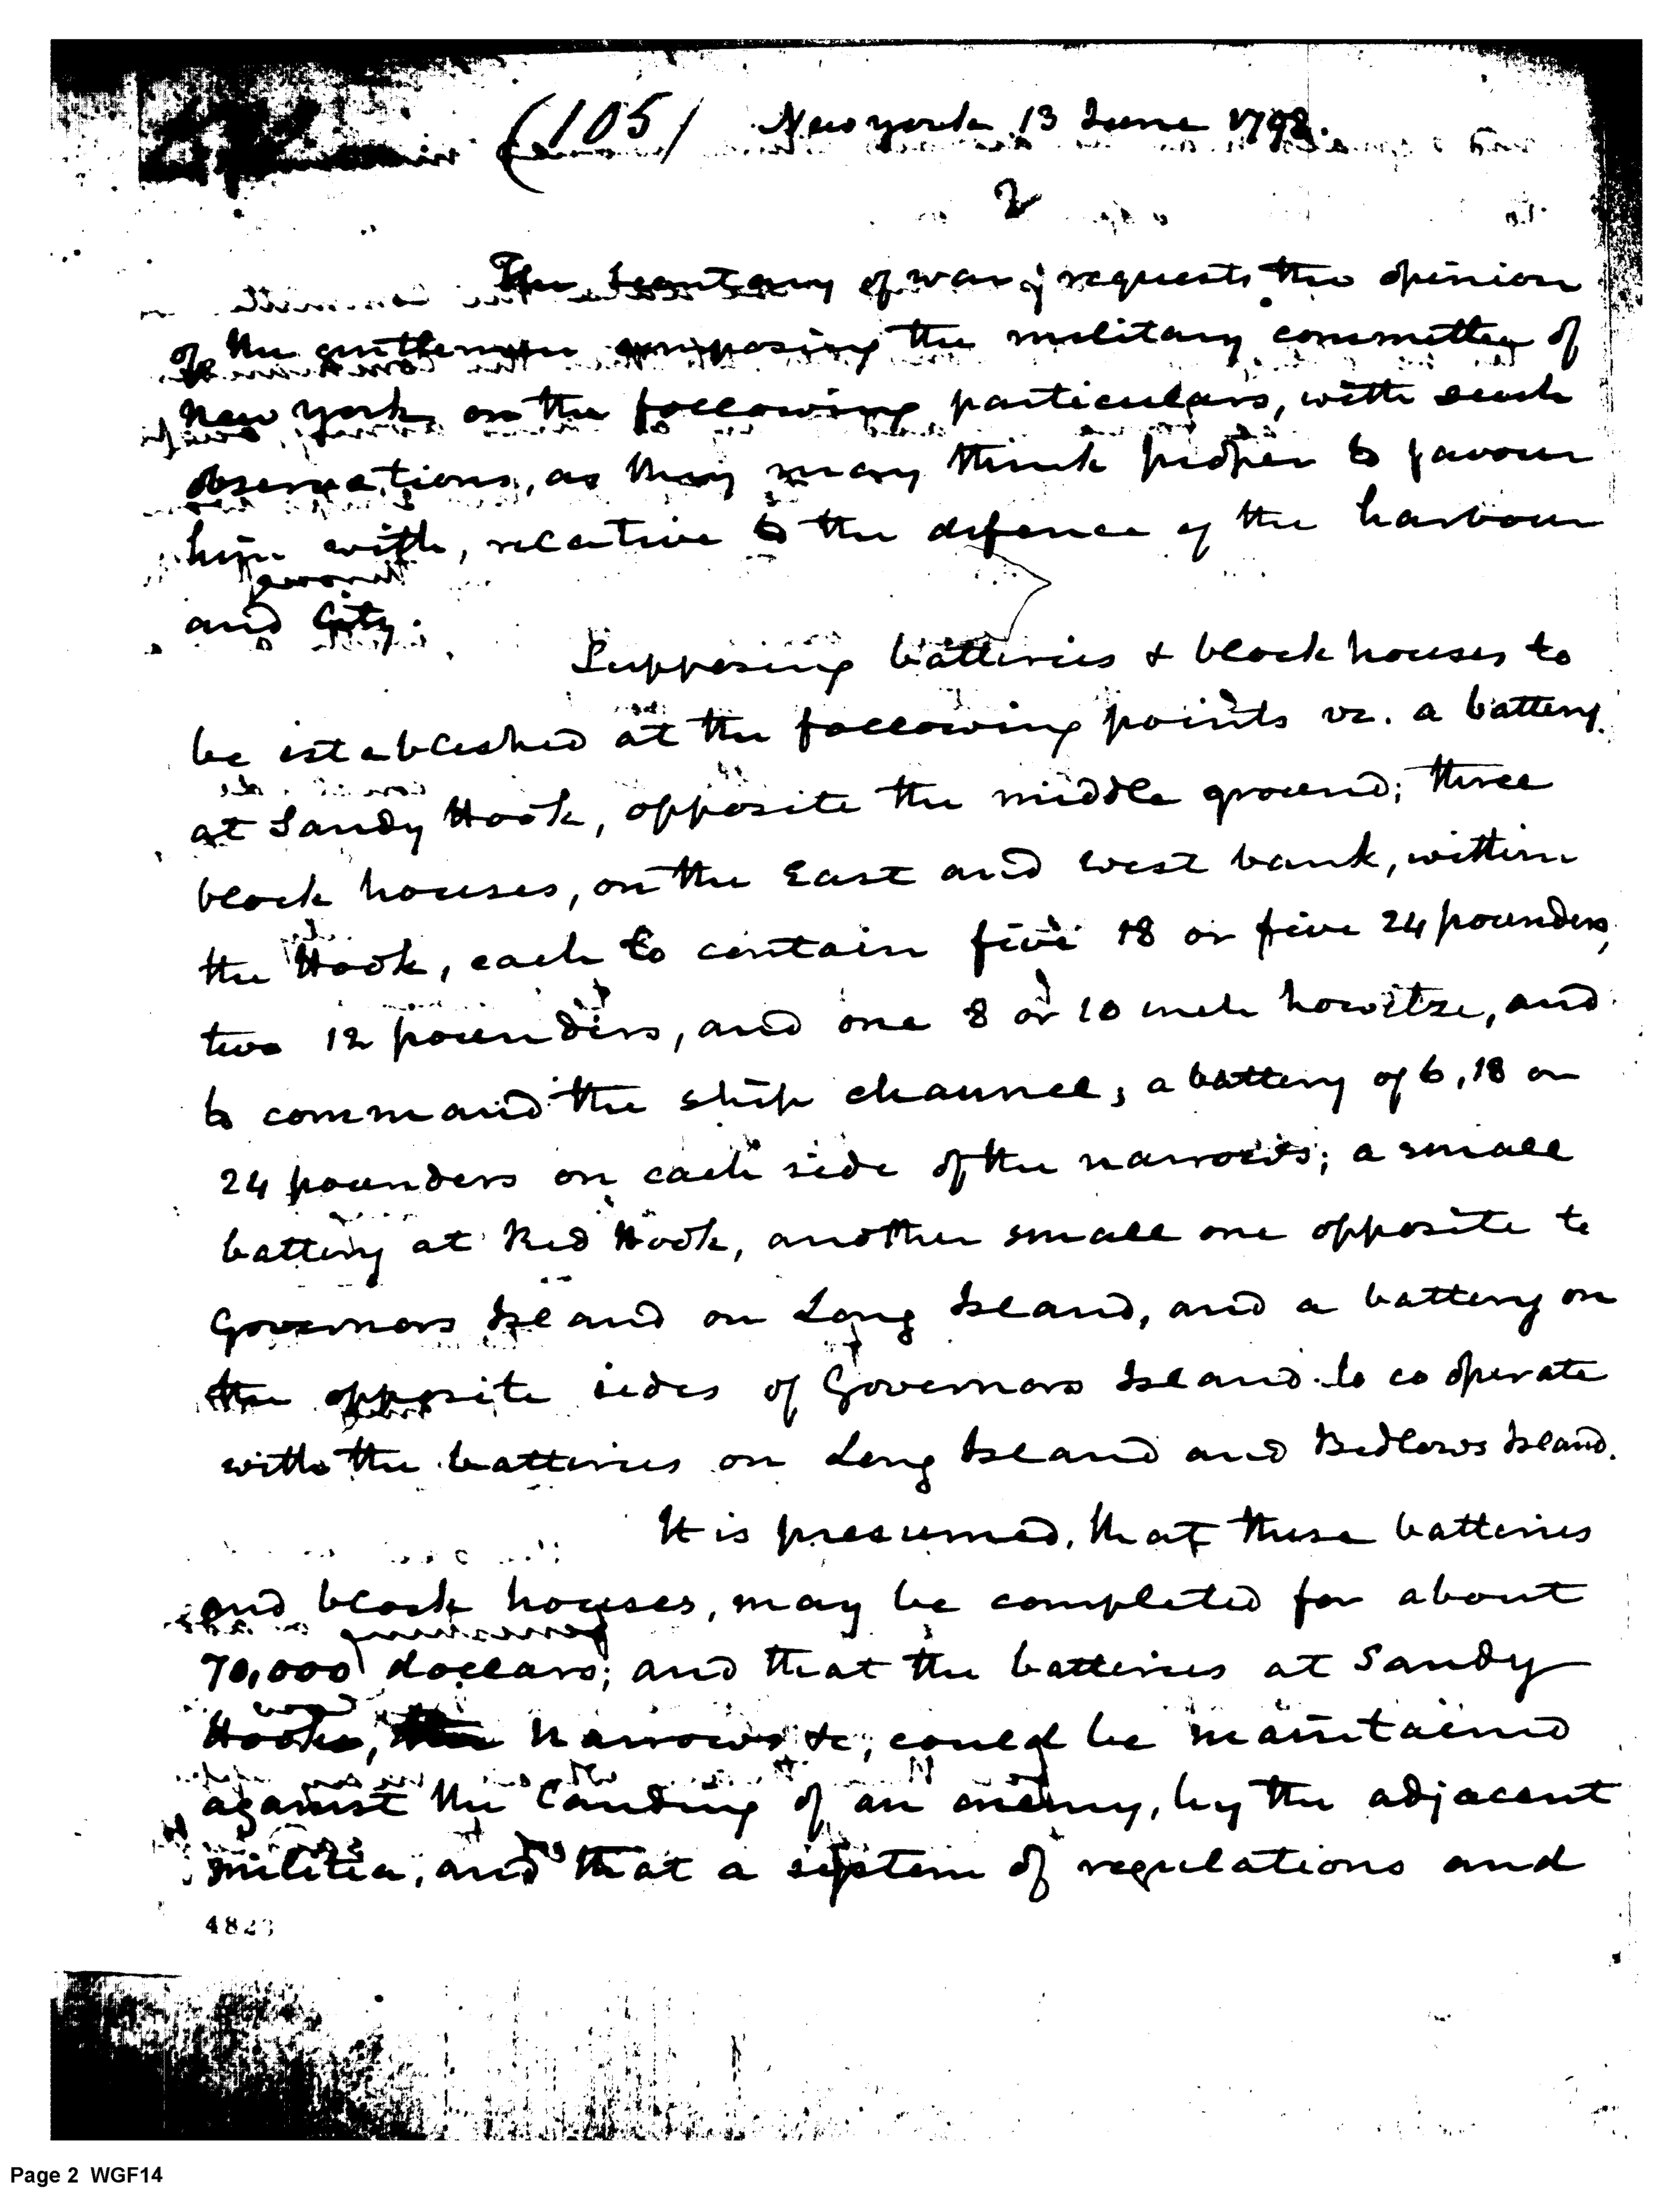 (105) New york 13 June 1798.
2
The Secretary of war requests the opinion
of the gentlemen composing the military committee of
New york on the following particulars, with such
observations, as they may think proper to favour
him with, relative to the defence of the harbour
and City.
Supposing batteries & block houses to
be established at the following points vz. a battery
at Sandy Hook, opposite the middle ground; three
block houses, on the East and west bank, within
the Hook, each to contain five 18 or five 24 pounders,
two 12 pounders, and one 8 or 10 inch howitze, and
to command the ship channel; a battery of 6, 18 or
24 pounders on each side of the narrows; a small
battery at Red Hook, another small one opposite to
Governors Island on Long Island, and a battery on
the opposite sides of Governors Island to co operate
with the batteries on Long Island and Bedlows Island.
It is presumed, that these batteries
and block houses, may be completed for about
70,000 dollars; and that the batteries at Sandy
Hook, Narrows &c, could be maintained
against the landing of an enemy, by the adjacent
militia, and that a system of regulations and
Page 2 WGF14